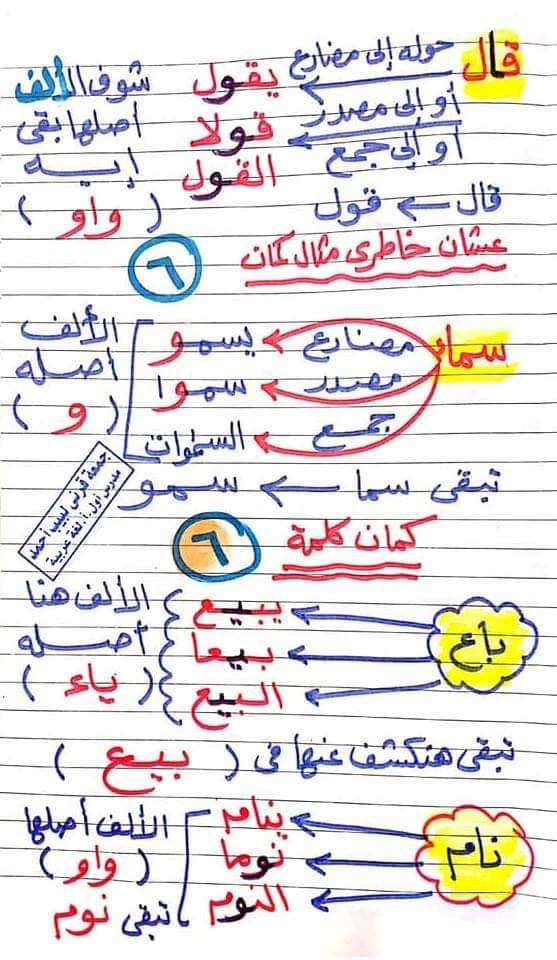 قال حوله إلى مضارع يقول شوف الألف
أو إلى مصدر قولا أصلها بقى
أو إلى جمع القول إيه
قال ← قول ( واو )
عشان خاطرى مثال كمان ٦
سماء مضارع يسمو الألف
مصدر سموا أصله
جمع السموات ( و )
تبقى سما ← سمو
جمعة قرني لبيب أحمد
مدرس أول أ. لغة عربية
كمان كلمة ٦
باع يبيع الألف هنا
بيعا أصله
البيع ( ياء )
تبقى هنكشف عنها فى ( بيع )
نام ينام الألف أصلها
نوما ( واو )
النوم تبقى نوم